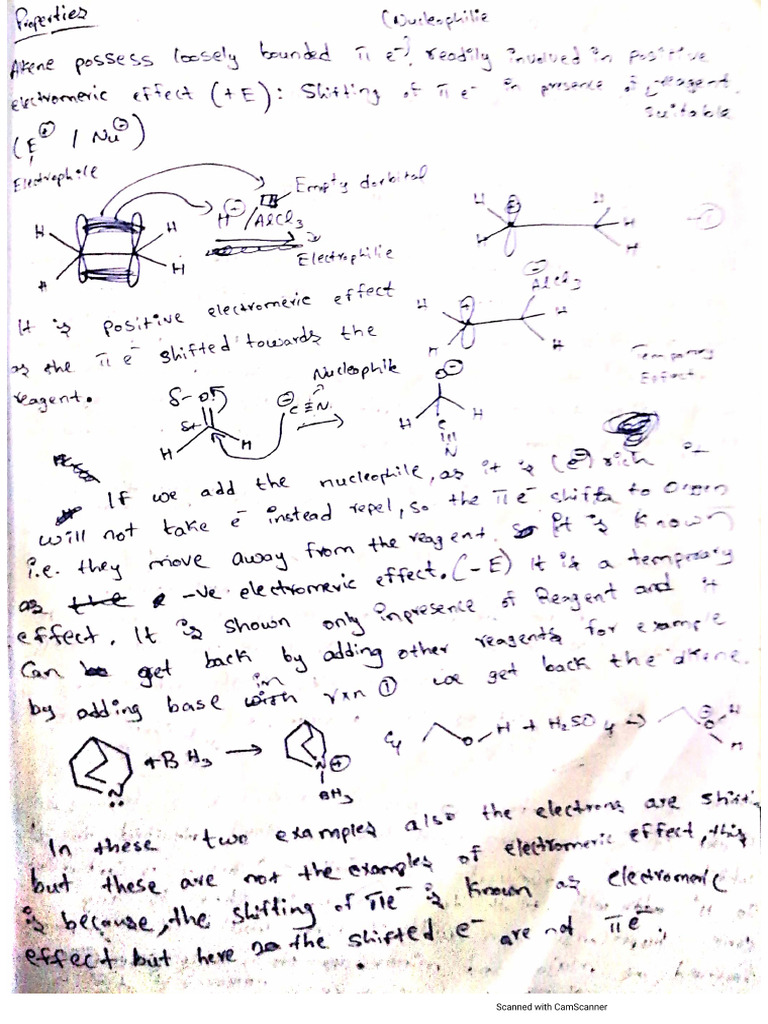 Properties
(Nucleophilie
Alkene possess loosely bounded π e⁻, readily involved in positive
electromeric effect (+E): Shifting of π e⁻ in presence of reagent
suitable
(E⊕ / Nu⊖)
Electrophile
Empty d orbital
H H H H
H⊕/AlCl3
Electrophilie
H H ⊕ H H H ①
⊖ AlCl3
H H + H H
It is positive electromeric effect
as the π e⁻ shifted towards the
reagent.
Temporary
Effect.
Nucleophile
δ- O
δ+
H H
⊖C≡N
O⊖
H H
C
≡
N
If we add the nucleophile, as it is (e⊖) rich it
will not take e⁻ instead repel, so the π e⁻ shifts to Oxygen
i.e. they move away from the reagent. It is known
as -ve electromeric effect. (-E) It is a temporary
effect. It is shown only inpresence of Reagent and it
can get back by adding other reagents for example
by adding base in rxn ① we get back the alkene.
N + BH3 → N⊕ BH3
Eg O-H + H2SO4 → ⊕O H H
In these two examples also the electrons are shifti
but these are not the examples of electromeric effect, this
is because, the shifting of πe⁻ is known as electromeric
effect but here the shifted e⁻ are not πe⁻.
Scanned with CamScanner